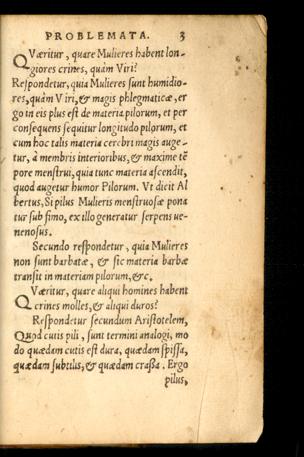 PROBLEMATA. 3
QVæritur, quare Mulieres habent lon-
giores crines, quàm Viri?
Respondetur, quia Mulieres sunt humidio-
res, quàm Viri, & magis phlegmaticæ, er
go in eis plus est de materia pilorum, et per
consequens sequitur longitudo pilorum, et
cum hoc talis materia cerebri magis auge-
tur, à membris interioribus, & maxime tē
pore menstrui, quia tunc materia ascendit,
quod augetur humor Pilorum. Vt dicit Al
bertus, Si pilus Mulieris menstruosæ pona
tur sub fimo, ex illo generatur serpens ue-
nenosus.
Secundo respondetur, quia Mulieres
non sunt barbatæ, & sic materia barbæ
transit in materiam pilorum, &c.
QVæritur, quare aliqui homines habent
crines molles, & aliqui duros?
Respondetur secundum Aristotelem,
Quod cutis pili, sunt termini analogi, mo
do quædam cutis est dura, quædam spissa,
quædam subtilis, & quædam crassa. Ergo
pilus,